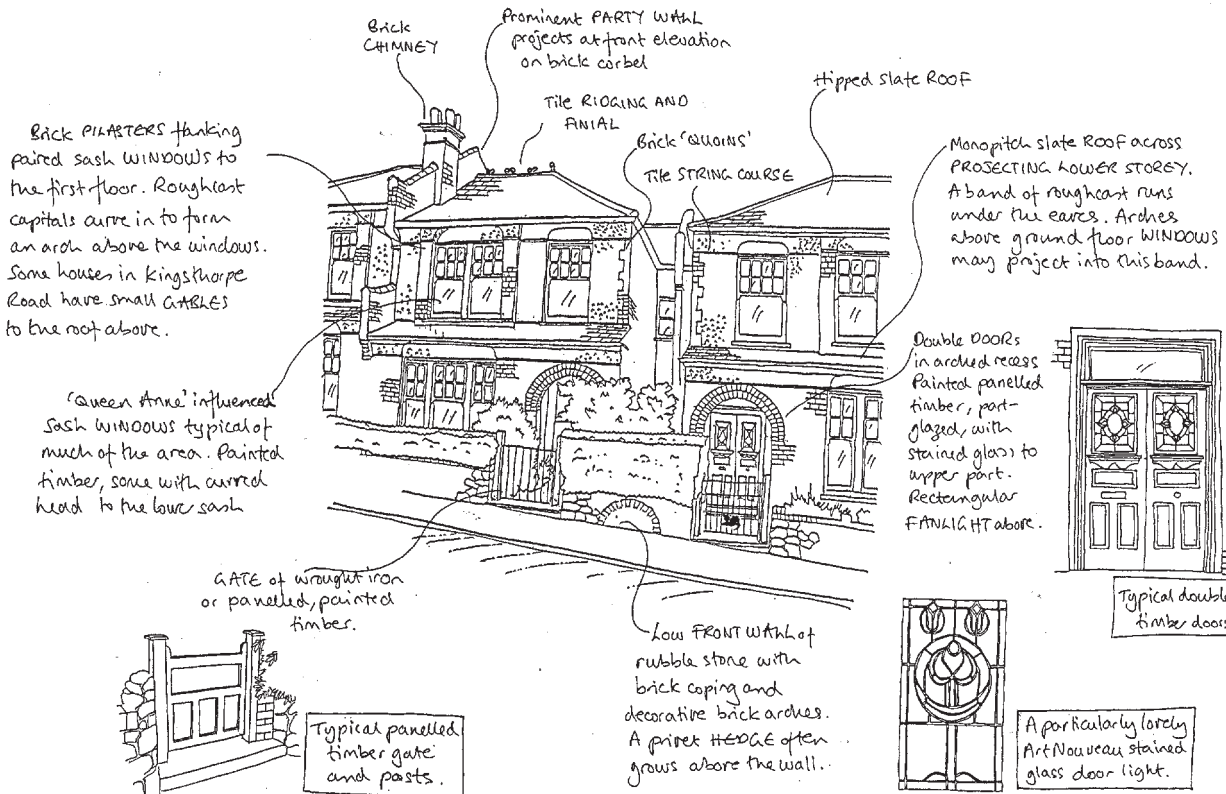 Brick
CHIMNEY
Prominent PARTY WALL
projects at front elevation
on brick corbel
Tile RIDGING AND
FINIAL
Hipped slate ROOF
Brick PILASTERS flanking
paired sash WINDOWS to
the first floor. Roughcast
capitals curve in to form
an arch above the windows.
Some houses in Kingsthorpe
Road have small GABLES
to the roof above.
Brick 'QUOINS'
Tile STRING COURSE
Monopitch slate ROOF across
PROJECTING LOWER STOREY.
A band of roughcast runs
under the eaves. Arches
above ground floor WINDOWS
may project into this band.
'Queen Anne' influenced
sash WINDOWS typical of
much of the area. Painted
timber, some with curved
head to the lower sash
Double DOORS
in arched recess
Painted panelled
timber, part-
glazed, with
stained glass to
upper part.
Rectangular
FANLIGHT above.
GATE of wrought iron
or panelled, painted
timber.
Typical double
timber doors
Low FRONT WALL of
rubble stone with
brick coping and
decorative brick arches.
A privet HEDGE often
grows above the wall.
Typical panelled
timber gate
and posts.
A particularly lovely
Art Nouveau stained
glass door light.